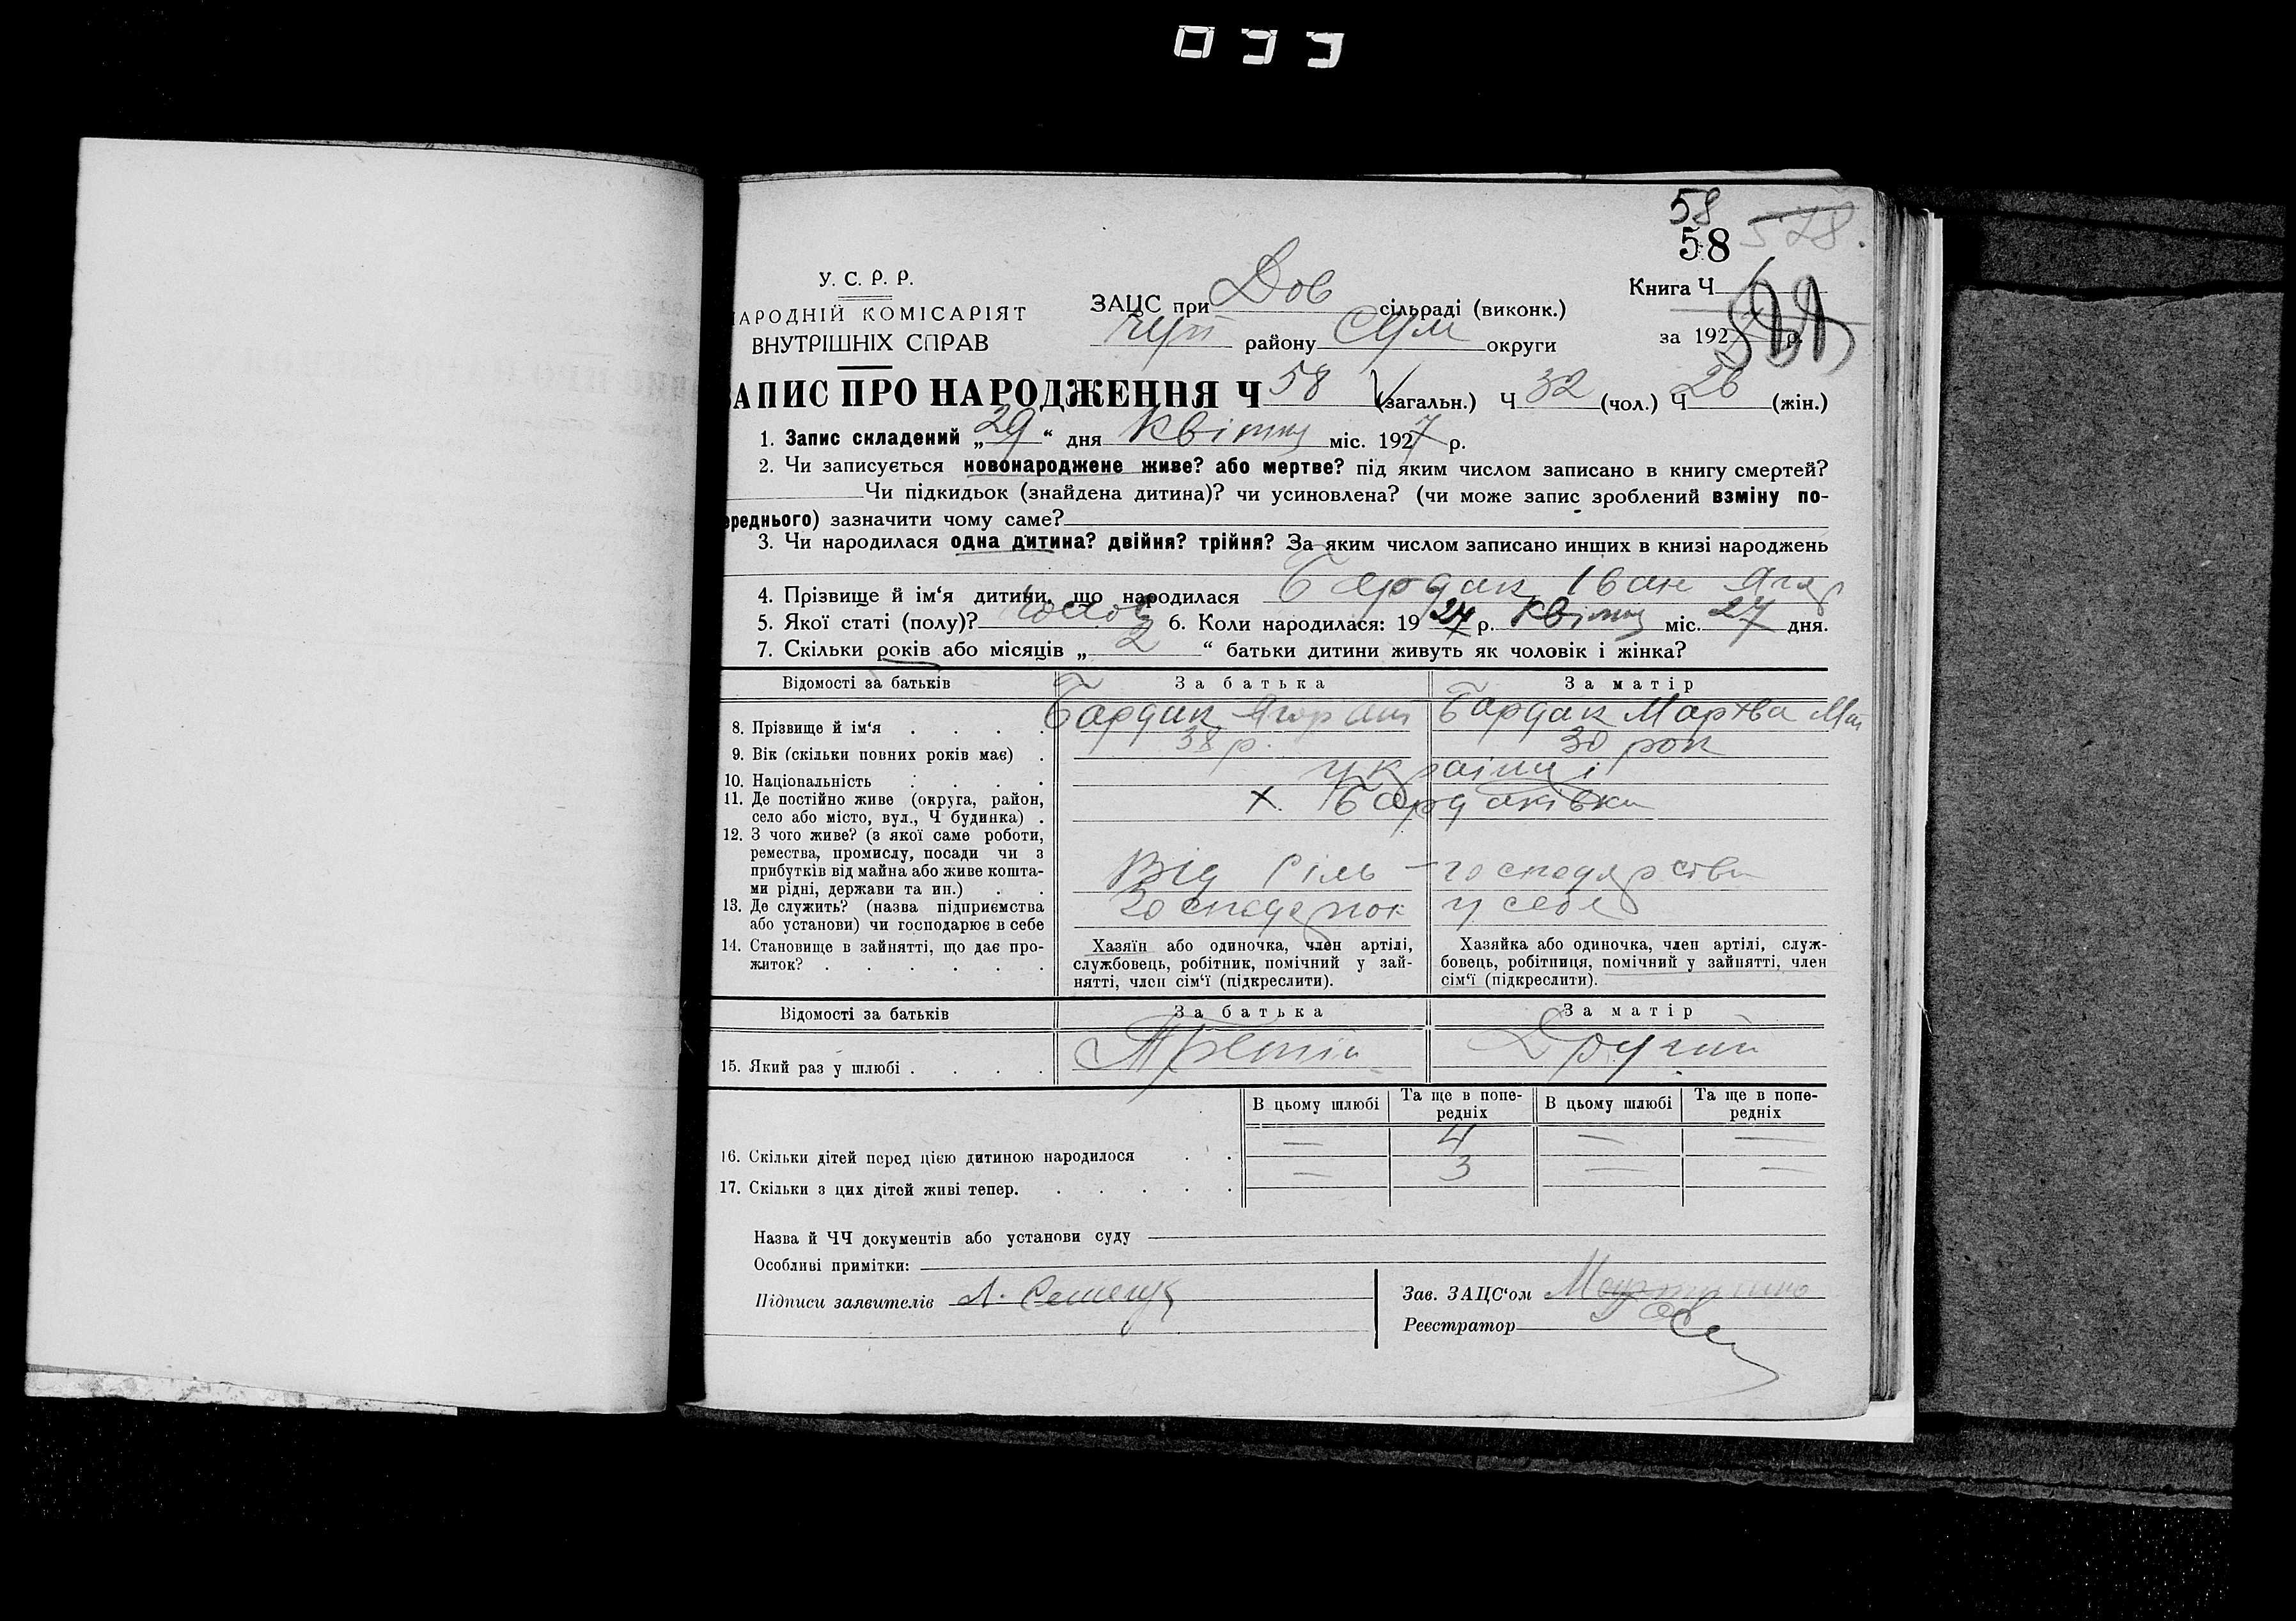 033
58
58 578.
У. С. Р. Р.
АРОДНІЙ КОМІСАРІЯТ
ВНУТРІШНІХ СПРАВ
ЗАЦС при Дов сільраді (виконк.)
району Сум округи
Книга Ч
за 192 р.
АПИС ПРО НАРОДЖЕННЯ Ч 58 (загальн.) Ч 32 (чол.) Ч 26 (жін.)
1. Запис складений „29“ дня Квітня міс. 1927 р.
2. Чи записується новонароджене живе? або мертве? під яким числом записано в книгу смертей?
Чи підкидьок (знайдена дитина)? чи усиновлена? (чи може запис зроблений взміну по-
ереднього) зазначити чому саме?
3. Чи народилася одна дитина? двійня? трійня? За яким числом записано инших в книзі народжень
4. Прізвище й ім‘я дитини, що народилася Бардак Іван Ягор
5. Якої статі (полу)? Чолов 6. Коли народилася: 1927 р. Квітня міс. 27 дня.
7. Скільки років або місяців „2“ батьки дитини живуть як чоловік і жінка?
Відомості за батьків За батька За матір
8. Прізвище й ім‘я Бардак Ягор Бардак Мархва
9. Вік (скільки повних років має) 38 р. 30 рок
10. Національність українці
11. Де постійно живе (округа, район,
село або місто, вул., Ч будинка) х. Бардаківка
12. З чого живе? (з якої саме роботи,
ремества, промислу, посади чи з
прибутків від майна або живе кошта-
ми рідні, держави та ин.) Від сіль-господарства
13. Де служить? (назва підприємства
або установи) чи господарює в себе у себе
14. Становище в зайнятті, що дає про-
житок?
Хазяїн або одиночка, член артілі,
службовець, робітник, помічний у зай-
нятті, член сім‘ї (підкреслити).
Хазяйка або одиночка, член артілі, служ-
бовець, робітниця, помічний у зайнятті, член
сім‘ї (підкреслити).
Відомості за батьків За батька За матір
15. Який раз у шлюбі Третій Другий
В цьому шлюбі Та ще в попе-
редніх В цьому шлюбі Та ще в попе-
редніх
16. Скільки дітей перед цією дитиною народилося — 4 — —
17. Скільки з цих дітей живі тепер. — 3 — —
Назва й ЧЧ документів або установи суду
Особливі примітки:
Підписи заявителів
Зав. ЗАЦС‘ом
Реєстратор